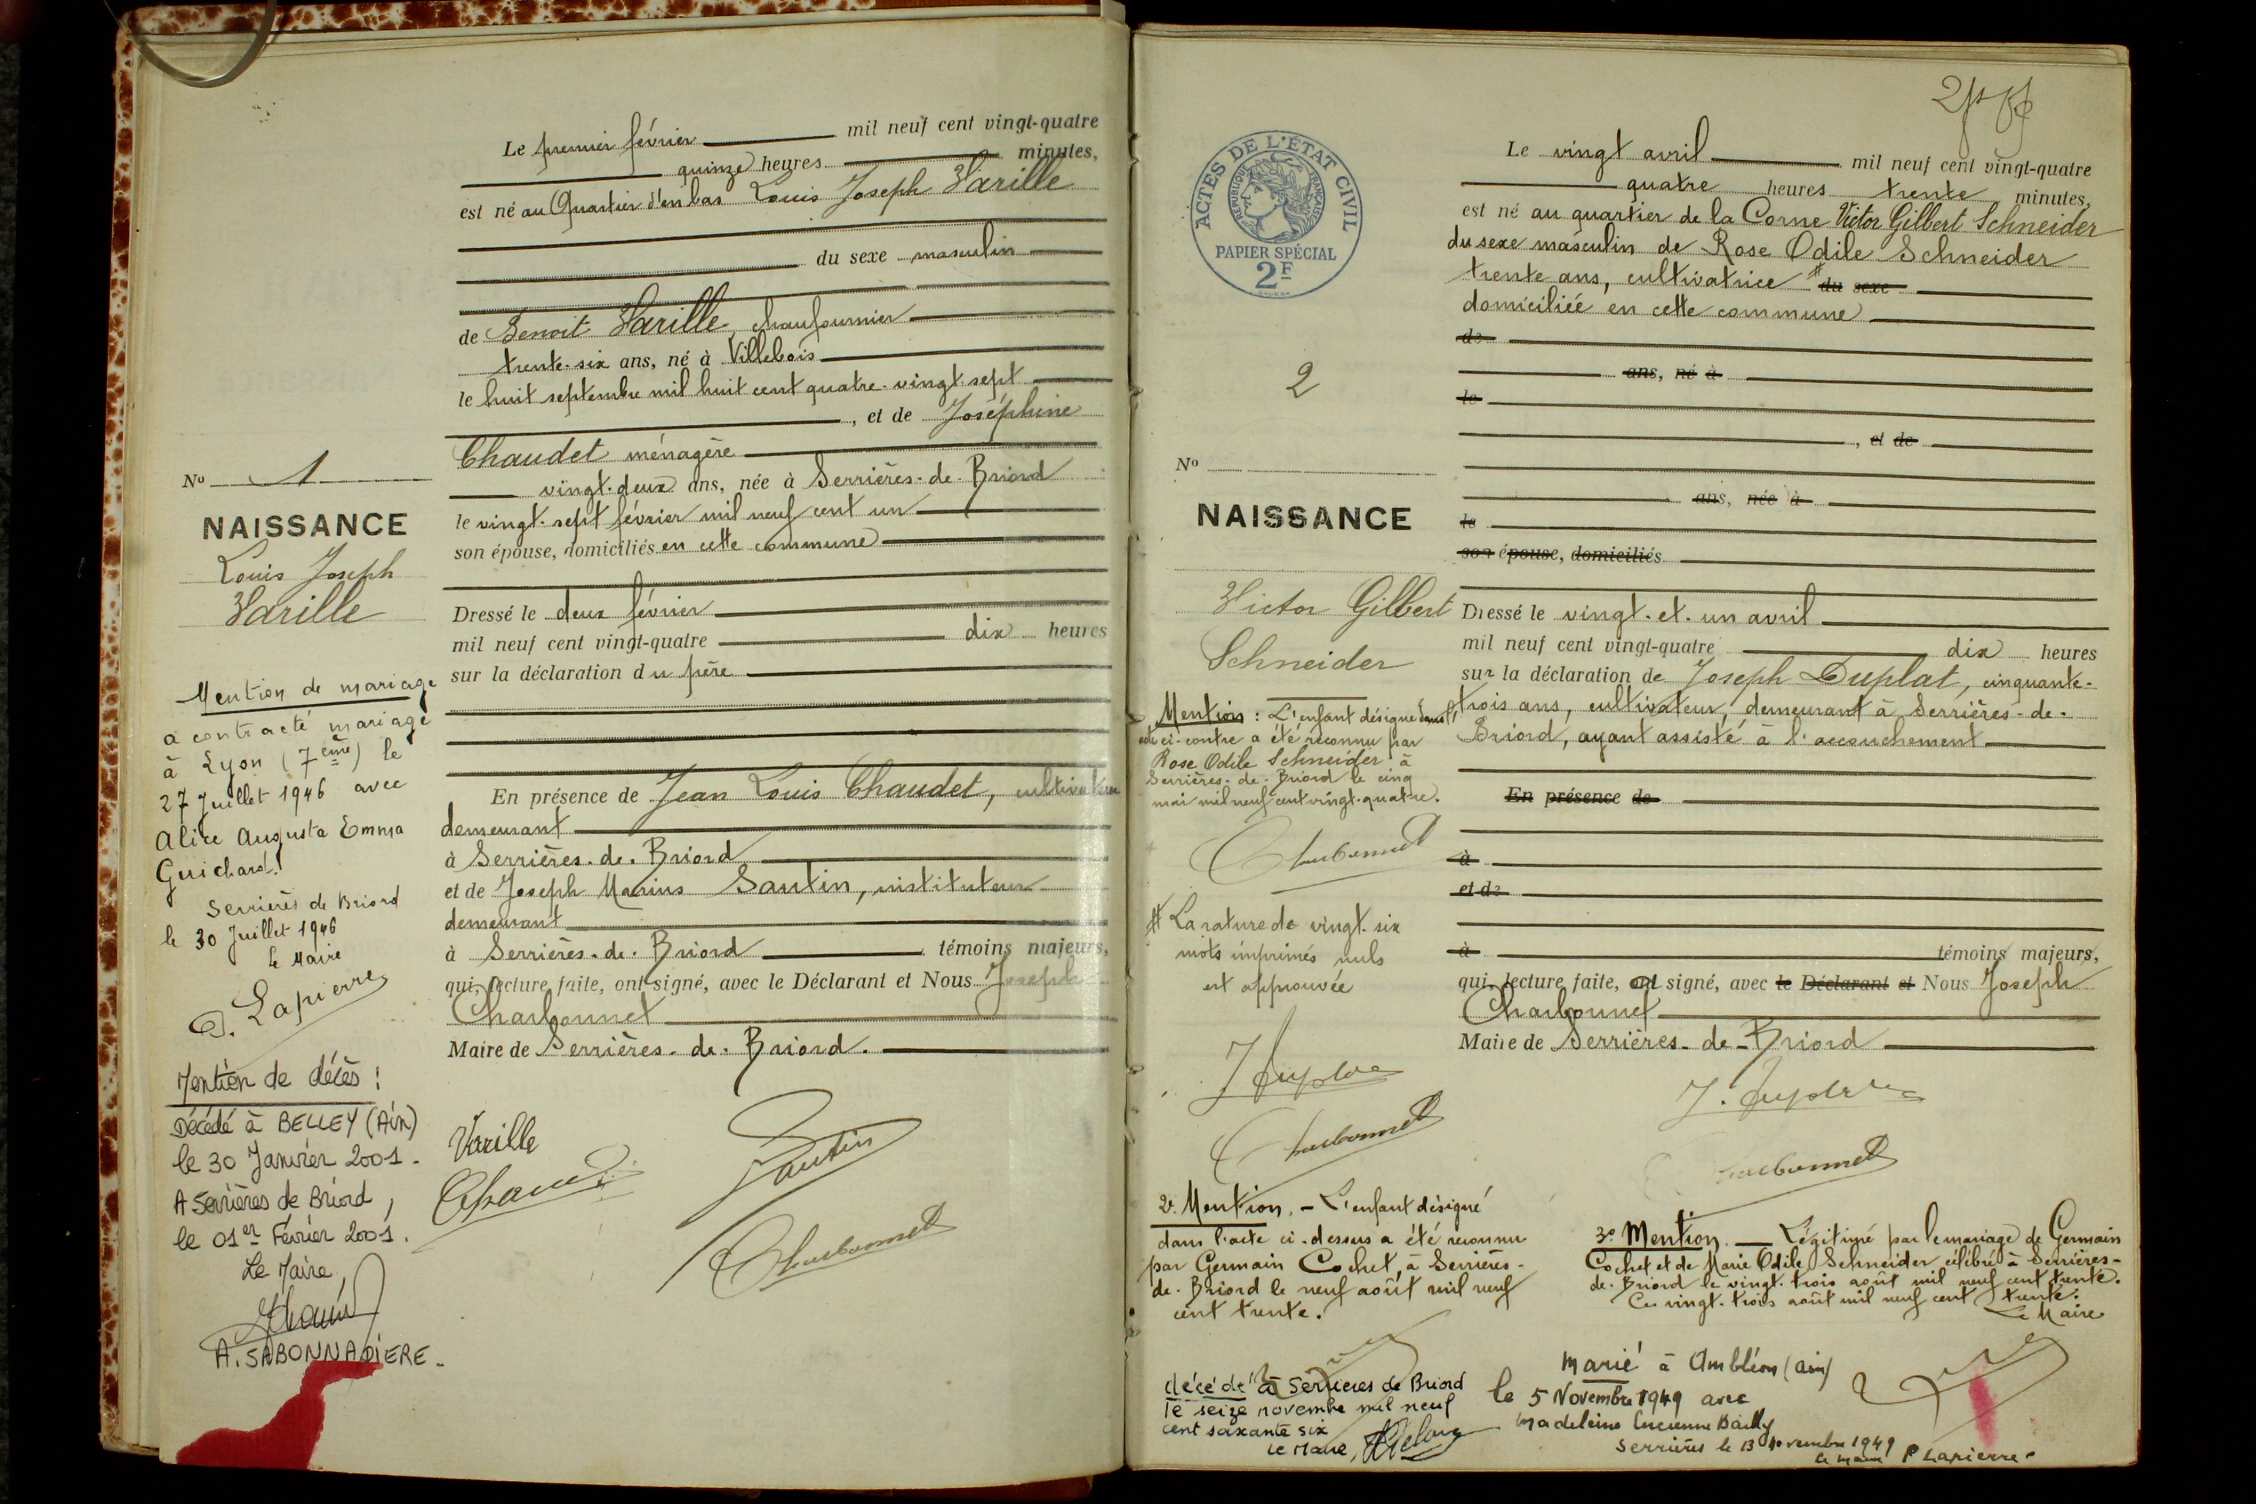 Le premier février mil neuf cent vingt-quatre
quinze heures minutes,
est né au Quartier d'en bas Louis Joseph Varille
du sexe masculin
de Benoit Varille, chaufournier
trente-six ans, né à Villebois
le huit septembre mil huit cent quatre-vingt-sept
, et de Joséphine
Chaudet ménagère
vingt-deux ans, née à Serrières-de-Briord
le vingt-sept février mil neuf cent un
son épouse, domiciliés en cette commune
Dressé le deux février
mil neuf cent vingt-quatre dix heures
sur la déclaration du père
En présence de Jean Louis Chaudet, cultivateur
demeurant
à Serrières-de-Briord
et de Joseph Marius Santin, instituteur
demeurant
à Serrières-de-Briord témoins majeurs,
qui, lecture faite, ont signé, avec le Déclarant et Nous Joseph
Charbonnet
Maire de Serrières-de-Briord.
Varille
Santin
Charbonnet
No 1
NAISSANCE
Louis Joseph
Varille
Mention de mariage
a contracté mariage
à Lyon (7ème) le
27 Juillet 1946 avec
Alice Augusta Emma
Guichard.
Serrières de Briord
le 30 Juillet 1946
Le Maire
P. Lapierre
Mention de décès :
Décédé à BELLEY (Ain)
le 30 Janvier 2001.
A Serrières de Briord,
le 01er Février 2001.
Le Maire,
A. SABONNADIERE.
ACTES DE L'ÉTAT CIVIL
RÉPUBLIQUE FRANÇAISE
PAPIER SPÉCIAL
2F
2
No
NAISSANCE
Victor Gilbert
Schneider
Mention : L'enfant désigné dans l'
acte ci-contre a été reconnu par
Rose Odile Schneider à
Serrières-de-Briord le cinq
mai mil neuf cent vingt-quatre.
Charbonnet
# La rature de vingt-six
mots imprimés nuls
est approuvée
J Duplat
Charbonnet
2e Mention. - L'enfant désigné
dans l'acte ci-dessus a été reconnu
par Germain Cochet, à Serrières-
de-Briord le neuf août mil neuf
cent trente.
décédé à Serrieres de Briord
le seize novembre mil neuf
cent soixante six
Le Maire,
Le vingt avril mil neuf cent vingt-quatre
quatre heures trente minutes,
est né au quartier de la Corne Victor Gilbert Schneider
du sexe masculin de Rose Odile Schneider
trente ans, cultivatrice # du sexe
domiciliée en cette commune
de
ans, né à
le
, et de
ans, née à
le
son épouse, domiciliés
Dressé le vingt-et-un avril
mil neuf cent vingt-quatre dix heures
sur la déclaration de Joseph Duplat, cinquante-
trois ans, cultivateur, demeurant à Serrières-de-
Briord, ayant assisté à l'accouchement
En présence de
à
et de
à témoins majeurs,
qui, lecture faite, a signé, avec le Déclarant et Nous Joseph
Charbonnet
Maire de Serrières-de-Briord
J. Duplat
Charbonnet
3e Mention. - Légitimé par le mariage de Germain
Cochet et de Marie Odile Schneider célébré à Serrières-
de-Briord le vingt-trois août mil neuf cent trente.
Ce vingt-trois août mil neuf cent trente.
Le Maire
Marié à Ambléon (Ain)
le 5 Novembre 1949 avec
Madeleine Lucienne Bailly
Serrières le 13 Novembre 1949
Le Maire P Lapierre